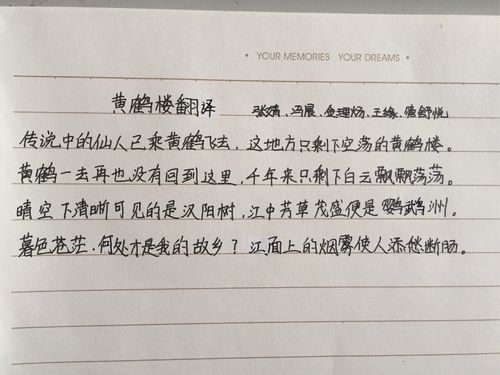 YOUR MEMORIES YOUR DREAMS
黄鹤楼翻译 张婧、冯晨、金理炀、王缘、唐舒悦
传说中的仙人已乘黄鹤飞去，这地方只剩下空荡的黄鹤楼。
黄鹤一去再也没有回到这里，千年来只剩下白云飘飘荡荡。
晴空下清晰可见的是汉阳树，江中芳草茂盛便是鹦鹉洲。
暮色苍茫，何处才是我的故乡？江面上的烟雾使人添愁断肠。